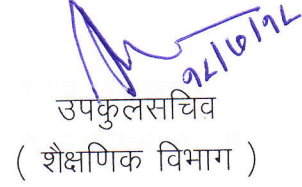 १८/७/१८
उपकुलसचिव
( शैक्षणिक विभाग )